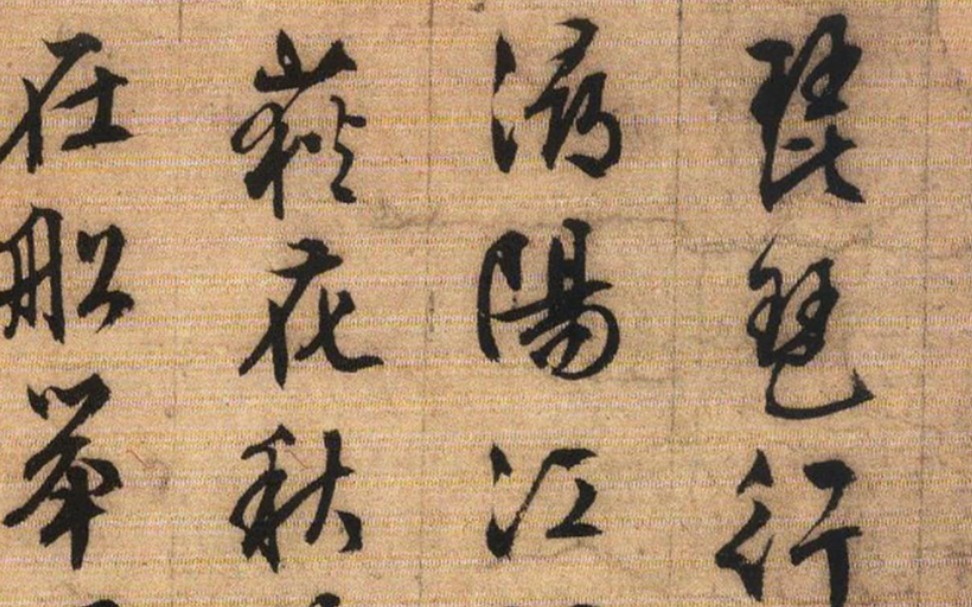 琵琶行
潯陽江
荻花秋
在船舉